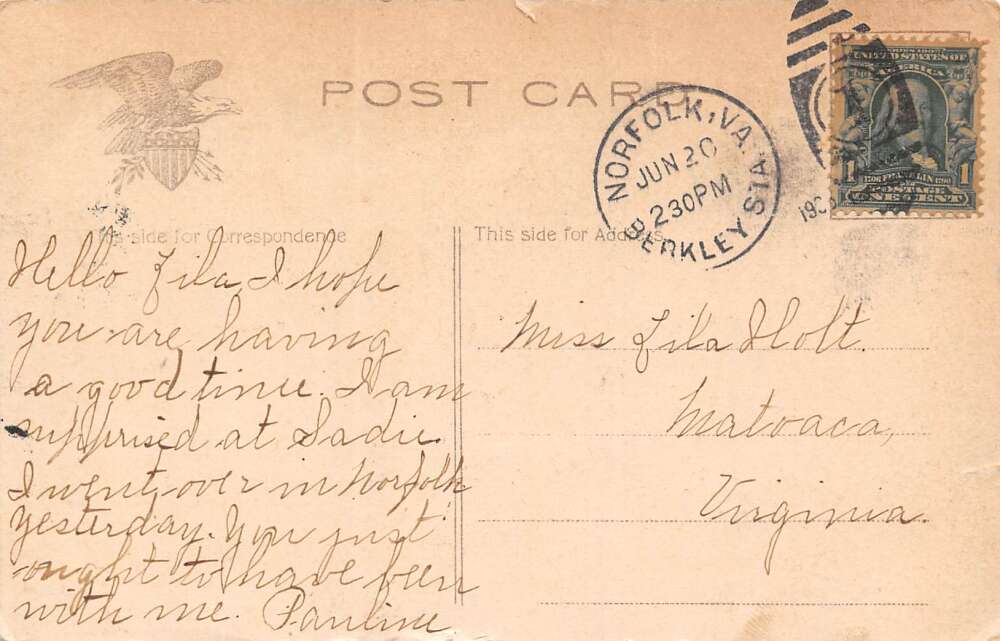 POST CARD
NORFOLK, VA.
JUN 20
2 30 PM
BERKLEY STA
190
SERIES 1902
UNITED STATES OF
AMERICA
1706 FRANKLIN 1790
1 1
POSTAGE
ONE CENT
This side for Correspondence
This side for Address
Hello Lila, I hope
you are having
a good time. I am
supprised at Sadie
I went over in Norfolk
yesterday. You just
ought to have been
with me. Pauline
Miss Lila Holt.
Matoaca,
Virginia.